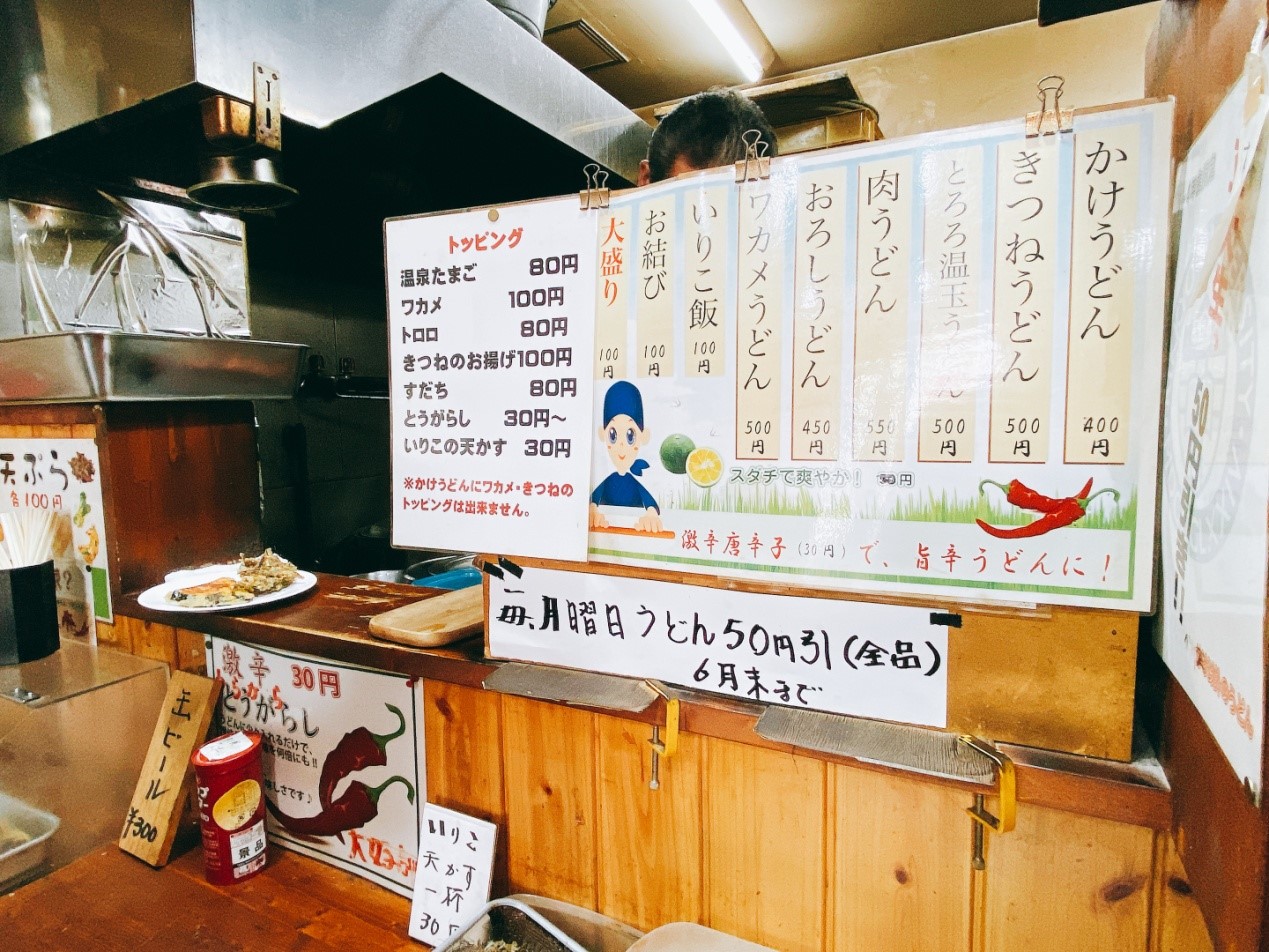 トッピング
温泉たまご 80円
ワカメ 100円
トロロ 80円
きつねのお揚げ100円
すだち 80円
とうがらし 30円～
いりこの天かす 30円
※かけうどんにワカメ・きつねの
トッピングは出来ません。
かけうどん 400円
きつねうどん 500円
とろろ温玉うどん 500円
肉うどん 550円
おろしうどん 450円
ワカメうどん 500円
いりこ飯 100円
お結び 100円
大盛り 100円
スダチで爽やか！ 円
激辛唐辛子(30円)で、旨辛うどんに！
毎月曜日うどん50円引(全品)
6月末まで
天ぷら
各100円
激辛 30円
とうがらし
うどんに入れるだけで、
を何倍にも!!
味しさです♪
缶ビール
¥300
景品
いりこ
天かす
一杯
30円